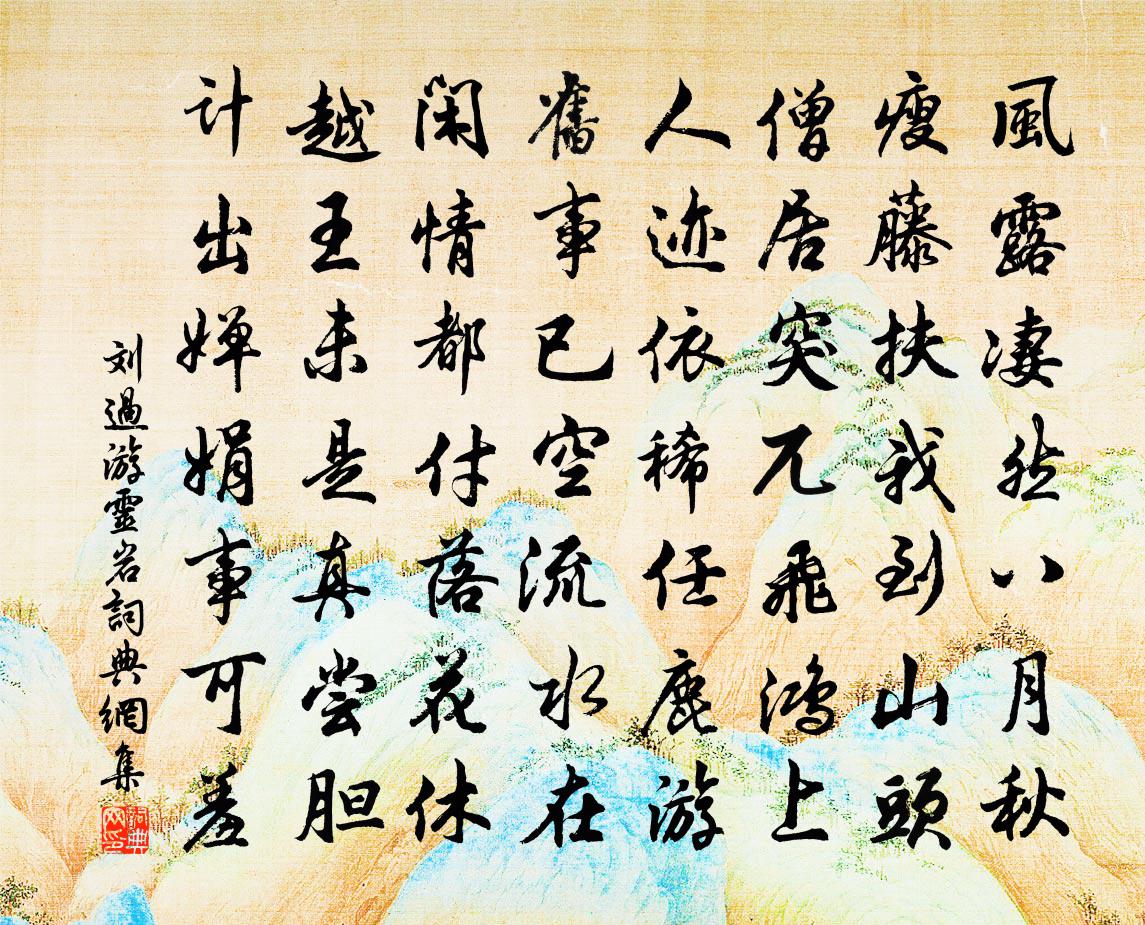 風露凄然八月秋
瘦藤扶我到山頭
僧居突兀飛鴻上
人迹依稀任鹿游
舊事已空流水在
閑情都付落花休
越王未是真尝胆
计出婵娟事可羞
刘過游靈岩詞典網集
詞典网印